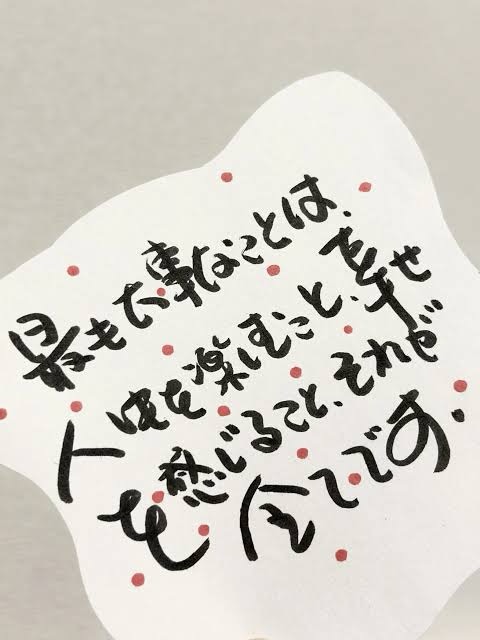 最も大事なことは、
人生を楽しむこと、幸せ
を感じること、それが
全てです。